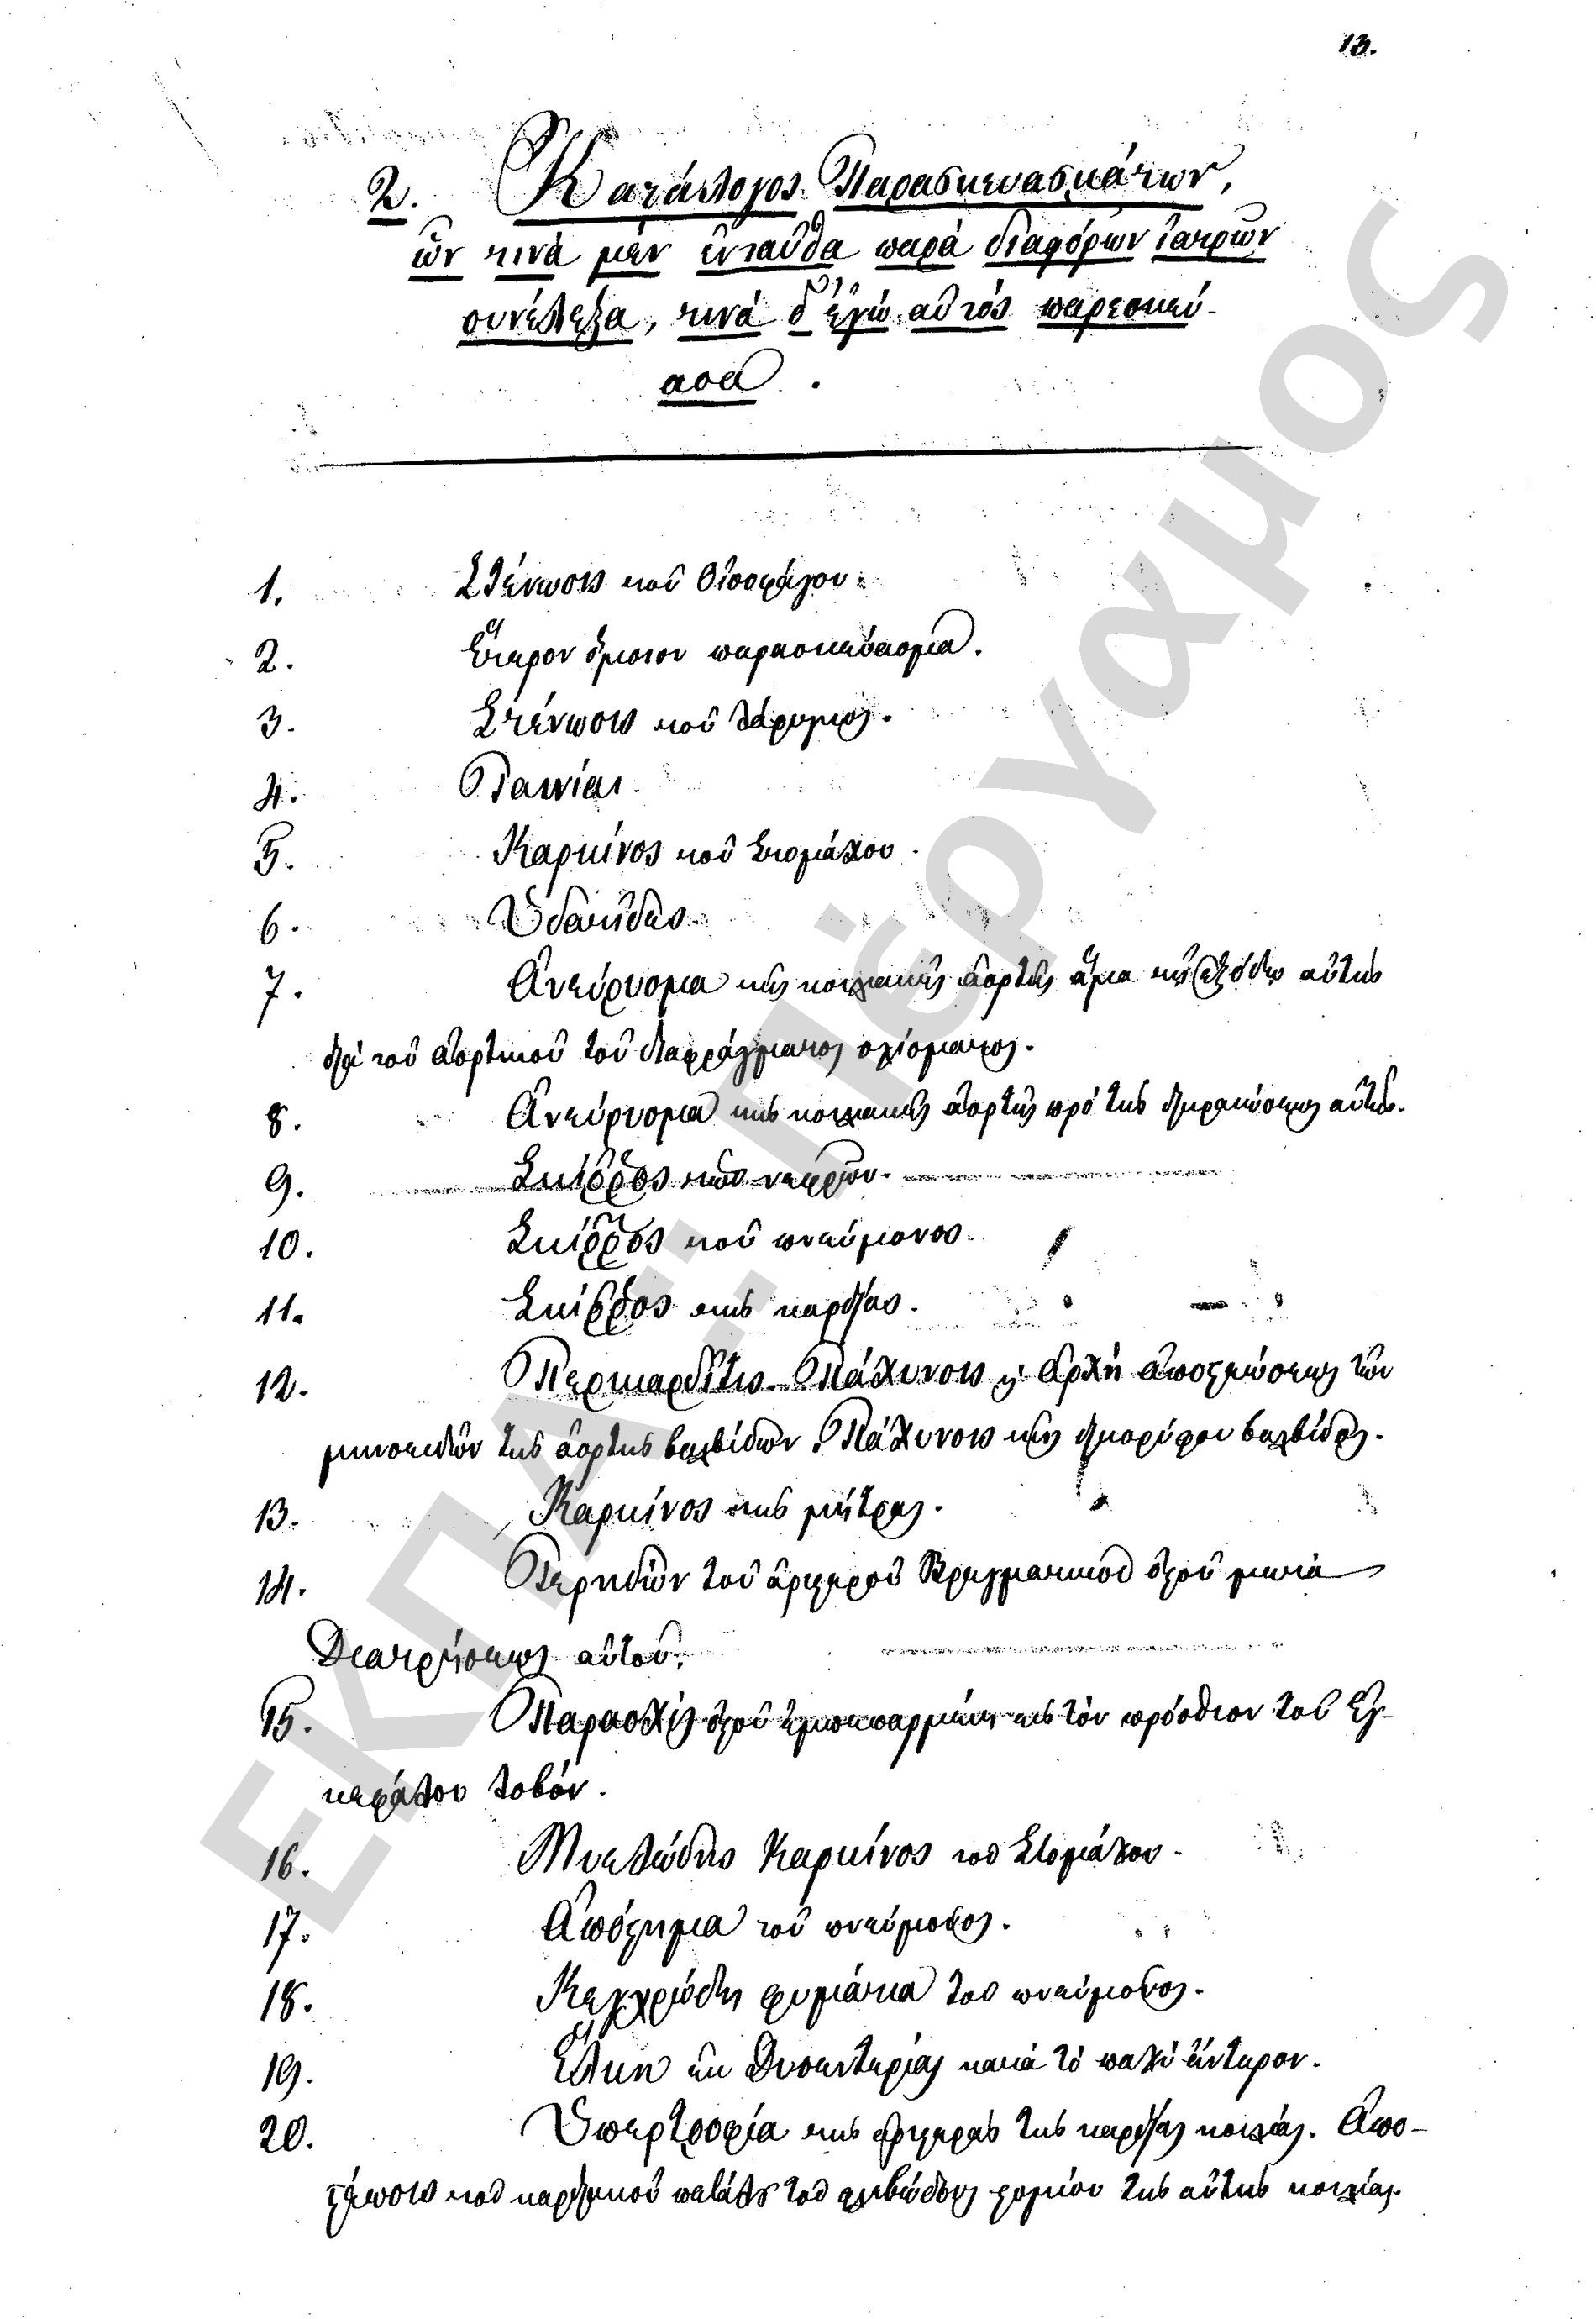 13.
2. Κατάλογος Παρασκευασμάτων,
ὧν τινὰ μὲν ἐνταῦθα παρὰ διαφόρων ἰατρῶν
συνέλεξα, τινὰ δ' ἐγὼ αὐτὸς παρεσκεύ-
ασα.
1. Στένωσις τοῦ Οἰσοφάγου.
2. Ἕτερον ὅμοιον παρασκεύασμα.
3. Στένωσις τοῦ λάρυγγος.
4. Ταινίαι.
5. Καρκίνος τοῦ Στομάχου.
6. Ὑδατίδες
7. Ἀνεύρυσμα τῆς κοιλιακῆς ἀορτῆς ἅμα τῇ ἐξόδῳ αὐτῆς
διὰ τοῦ ἀορτικοῦ τοῦ διαφράγματος σχίσματος.
8. Ἀνεύρυσμα τῆς κοιλιακῆς ἀορτῆς πρὸ τῆς διχρακώσεως αὐτῆς.
9. Σκίῤῥος τῶν νεφρῶν.
10. Σκίῤῥος τοῦ πνεύμονος.
11. Σκίῤῥος τῆς καρδίας.
12. Περικαρδῖτις. Πάχυνσις ἢ ἀρχὴ ἀποστεώσεως τῶν
μηνοειδῶν τῆς ἀορτῆς βαλβίδων. Πάχυνσις τῆς δικορύφου βαλβίδος.
13. Καρκίνος τῆς μήτρας.
14. Τερηδὼν τοῦ ἀριστεροῦ Βρεγματικοῦ ὀστοῦ μετὰ
Διατρήσεως αὐτοῦ.
15. Παρασχὶς ὀστοῦ ἐμπεπαρμένη εἰς τὸν πρόσθιον τοῦ Ἐγ-
κεφάλου λοβόν.
16. Μυελώδης Καρκίνος τοῦ Στομάχου.
17. Ἀπόστημα τοῦ πνεύμονος.
18. Κεγχρώδη φυμάτια τοῦ πνεύμονος.
19. Ἕλκη ἐκ Δυσεντερίας κατὰ τὸ παχὺ ἔντερον.
20. Ὑπερτροφία τῆς ἀριστερᾶς τῆς καρδίας κοιλίας. Ἀπο-
στέωσις τοῦ καρδιακοῦ πετάλου τοῦ φλεβώδους στομίου τῆς αὐτῆς κοιλίας.
ΕΚΠΑ: Πέργαμος